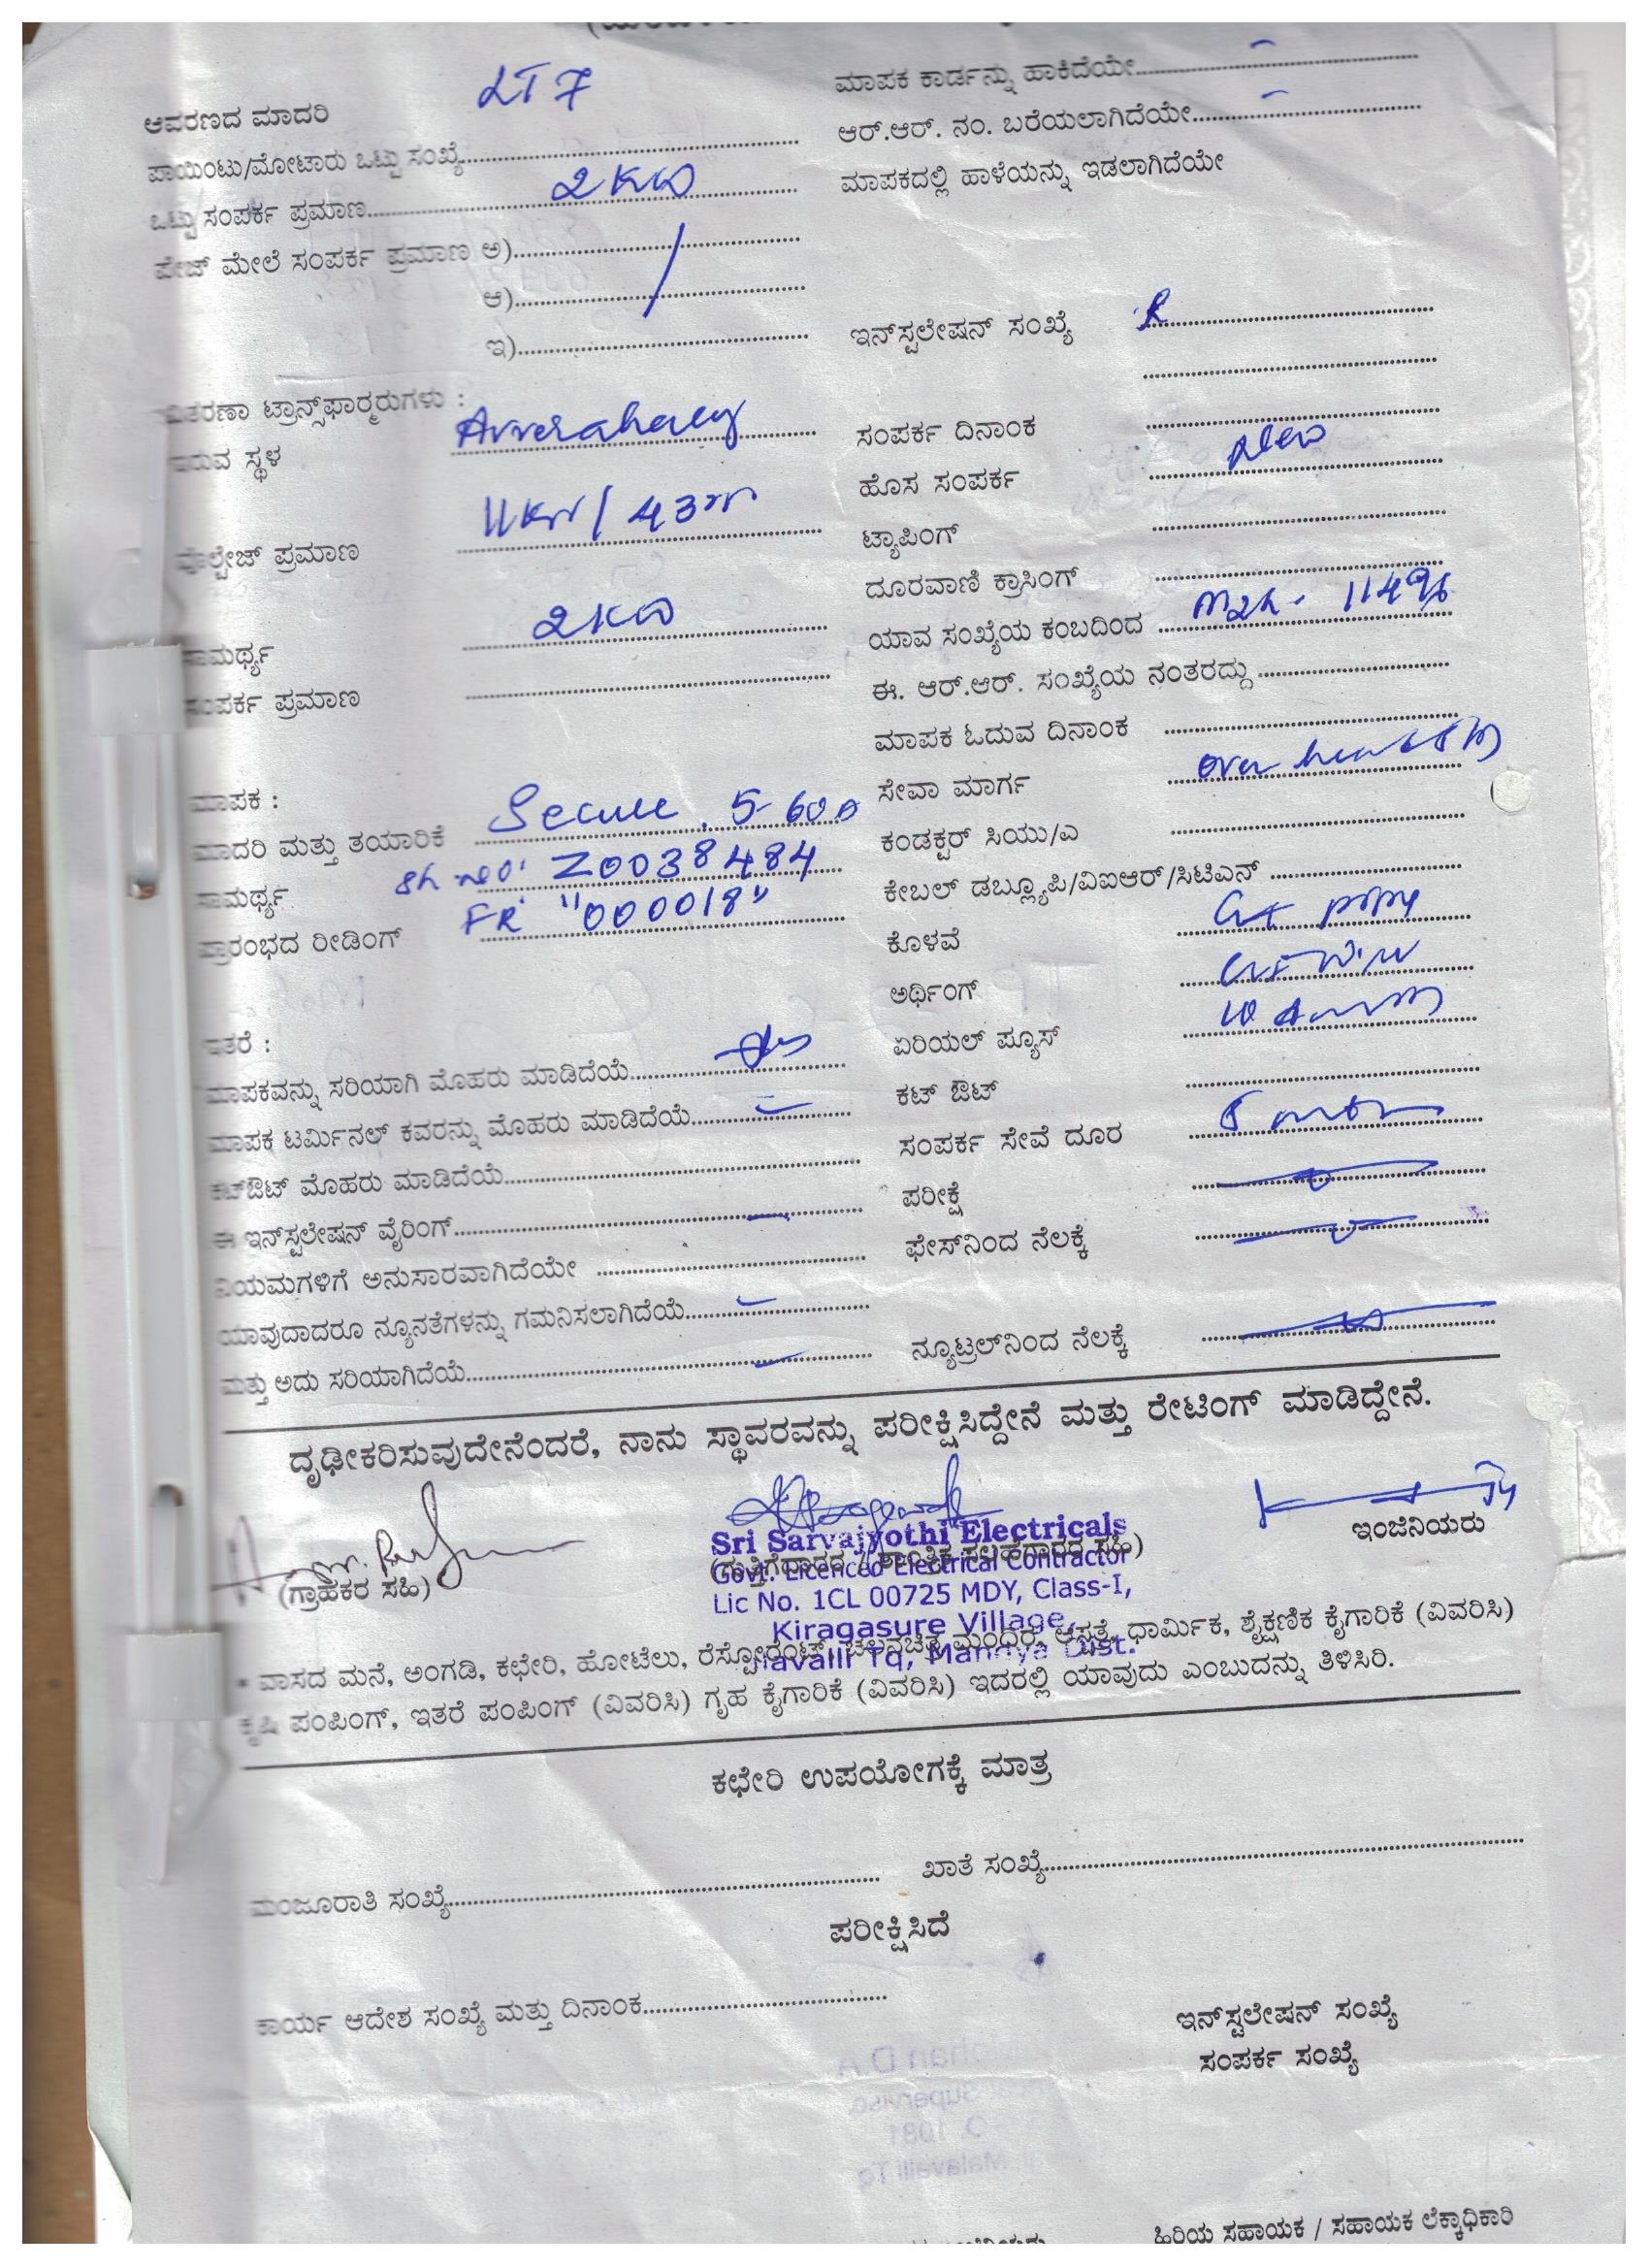 LT 7
ಆವರಣದ ಮಾದರಿ
ಪಾಯಿಂಟು/ಮೋಟಾರು ಒಟ್ಟು ಸಂಖ್ಯೆ
ಒಟ್ಟು ಸಂಪರ್ಕ ಪ್ರಮಾಣ 2KW
ಪೇಜ್ ಮೇಲೆ ಸಂಪರ್ಕ ಪ್ರಮಾಣ ಅ)
ಆ)
ಇ)
ವಿತರಣಾ ಟ್ರಾನ್ಸ್‌ಫಾರ್ಮರುಗಳು :
ಇರುವ ಸ್ಥಳ
ವೊಲ್ಟೇಜ್ ಪ್ರಮಾಣ 11KV/
ಸಾಮರ್ಥ್ಯ 2KW
ಸಂಪರ್ಕ ಪ್ರಮಾಣ
ಮಾಪಕ :
ಮಾದರಿ ಮತ್ತು ತಯಾರಿಕೆ Secure. 5-60A
ಸಾಮರ್ಥ್ಯ Z0038484
ಪ್ರಾರಂಭದ ರೀಡಿಂಗ್ FR "000018"
ಇತರೆ :
ಮಾಪಕವನ್ನು ಸರಿಯಾಗಿ ಮೊಹರು ಮಾಡಿದೆಯೆ
ಮಾಪಕ ಟರ್ಮಿನಲ್ ಕವರನ್ನು ಮೊಹರು ಮಾಡಿದೆಯೆ
ಕಟ್‌ಔಟ್ ಮೊಹರು ಮಾಡಿದೆಯೆ
ಈ ಇನ್‌ಸ್ಟಲೇಷನ್ ವೈರಿಂಗ್
ನಿಯಮಗಳಿಗೆ ಅನುಸಾರವಾಗಿದೆಯೇ
ಯಾವುದಾದರೂ ನ್ಯೂನತೆಗಳನ್ನು ಗಮನಿಸಲಾಗಿದೆಯೆ
ಮತ್ತು ಅದು ಸರಿಯಾಗಿದೆಯೆ
ಮಾಪಕ ಕಾರ್ಡನ್ನು ಹಾಕಿದೆಯೇ
ಆರ್.ಆರ್. ನಂ. ಬರೆಯಲಾಗಿದೆಯೇ
ಮಾಪಕದಲ್ಲಿ ಹಾಳೆಯನ್ನು ಇಡಲಾಗಿದೆಯೇ
ಇನ್‌ಸ್ಟಲೇಷನ್ ಸಂಖ್ಯೆ
ಸಂಪರ್ಕ ದಿನಾಂಕ
ಹೊಸ ಸಂಪರ್ಕ New
ಟ್ಯಾಪಿಂಗ್
ದೂರವಾಣಿ ಕ್ರಾಸಿಂಗ್
ಯಾವ ಸಂಖ್ಯೆಯ ಕಂಬದಿಂದ
ಈ. ಆರ್.ಆರ್. ಸಂಖ್ಯೆಯ ನಂತರದ್ದು
ಮಾಪಕ ಓದುವ ದಿನಾಂಕ
ಸೇವಾ ಮಾರ್ಗ
ಕಂಡಕ್ಟರ್ ಸಿಯು/ಎ
ಕೇಬಲ್ ಡಬ್ಲ್ಯೂಪಿ/ವಿಐಆರ್/ಸಿಟಿಎಸ್
ಕೊಳವೆ
ಅರ್ಥಿಂಗ್
ಏರಿಯಲ್ ಪ್ಯೂಸ್
ಕಟ್ ಔಟ್
ಸಂಪರ್ಕ ಸೇವೆ ದೂರ
ಪರೀಕ್ಷೆ
ಫೇಸ್‌ನಿಂದ ನೆಲಕ್ಕೆ
ನ್ಯೂಟ್ರಲ್‌ನಿಂದ ನೆಲಕ್ಕೆ
ದೃಢೀಕರಿಸುವುದೇನೆಂದರೆ, ನಾನು ಸ್ಥಾವರವನ್ನು ಪರೀಕ್ಷಿಸಿದ್ದೇನೆ ಮತ್ತು ರೇಟಿಂಗ್ ಮಾಡಿದ್ದೇನೆ.
(ಗ್ರಾಹಕರ ಸಹಿ)
Sri Sarvajyothi Electricals
Govt. Licenced Electrical Contractor
Lic No. 1CL 00725 MDY, Class-I,
Kiragasure Village,
Tq, Mandya Dist.
ಇಂಜಿನಿಯರು
* ವಾಸದ ಮನೆ, ಅಂಗಡಿ, ಕಛೇರಿ, ಹೋಟೆಲು, ರೆಸ್ಟೋರೆಂಟ್, ಚಲನಚಿತ್ರ ಮಂದಿರ, ಆಸ್ಪತ್ರೆ, ಧಾರ್ಮಿಕ, ಶೈಕ್ಷಣಿಕ ಕೈಗಾರಿಕೆ (ವಿವರಿಸಿ)
ಕೃಷಿ ಪಂಪಿಂಗ್, ಇತರೆ ಪಂಪಿಂಗ್ (ವಿವರಿಸಿ) ಗೃಹ ಕೈಗಾರಿಕೆ (ವಿವರಿಸಿ) ಇದರಲ್ಲಿ ಯಾವುದು ಎಂಬುದನ್ನು ತಿಳಿಸಿರಿ.
ಕಛೇರಿ ಉಪಯೋಗಕ್ಕೆ ಮಾತ್ರ
ಮಂಜೂರಾತಿ ಸಂಖ್ಯೆ ಖಾತೆ ಸಂಖ್ಯೆ
ಪರೀಕ್ಷಿಸಿದೆ
ಕಾರ್ಯ ಆದೇಶ ಸಂಖ್ಯೆ ಮತ್ತು ದಿನಾಂಕ
ಇನ್‌ಸ್ಟಲೇಷನ್ ಸಂಖ್ಯೆ
ಸಂಪರ್ಕ ಸಂಖ್ಯೆ
ಹಿರಿಯ ಸಹಾಯಕ / ಸಹಾಯಕ ಲೆಕ್ಕಾಧಿಕಾರಿ